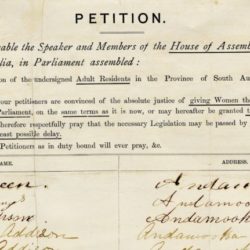 PETITION.
able the Speaker and Members of the House of Assemb
lia, in Parliament assembled :
ion of the undersigned Adult Residents in the Province of South Au
our petitioners are convinced of the absolute justice of giving Women th
Parliament, on the same terms as it is now, or may hereafter be granted t
herefore respectfully pray that the necessary Legislation may be passed by
east possible delay.
Petitioners as in duty bound will ever pray, &c.
NAME. ADDRESS.
een.
Andamoo
Andamook
Addison Andamooka